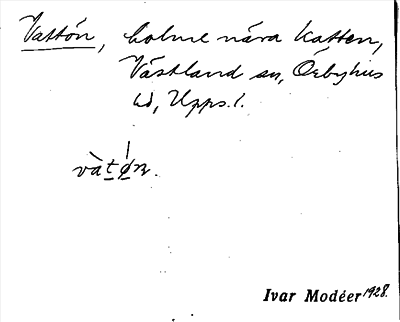 Vattön, holme nära Katten,
Västland sn, Örbyhus
hd, Upps. l.
vàtøn.
Ivar Modéer 1928.